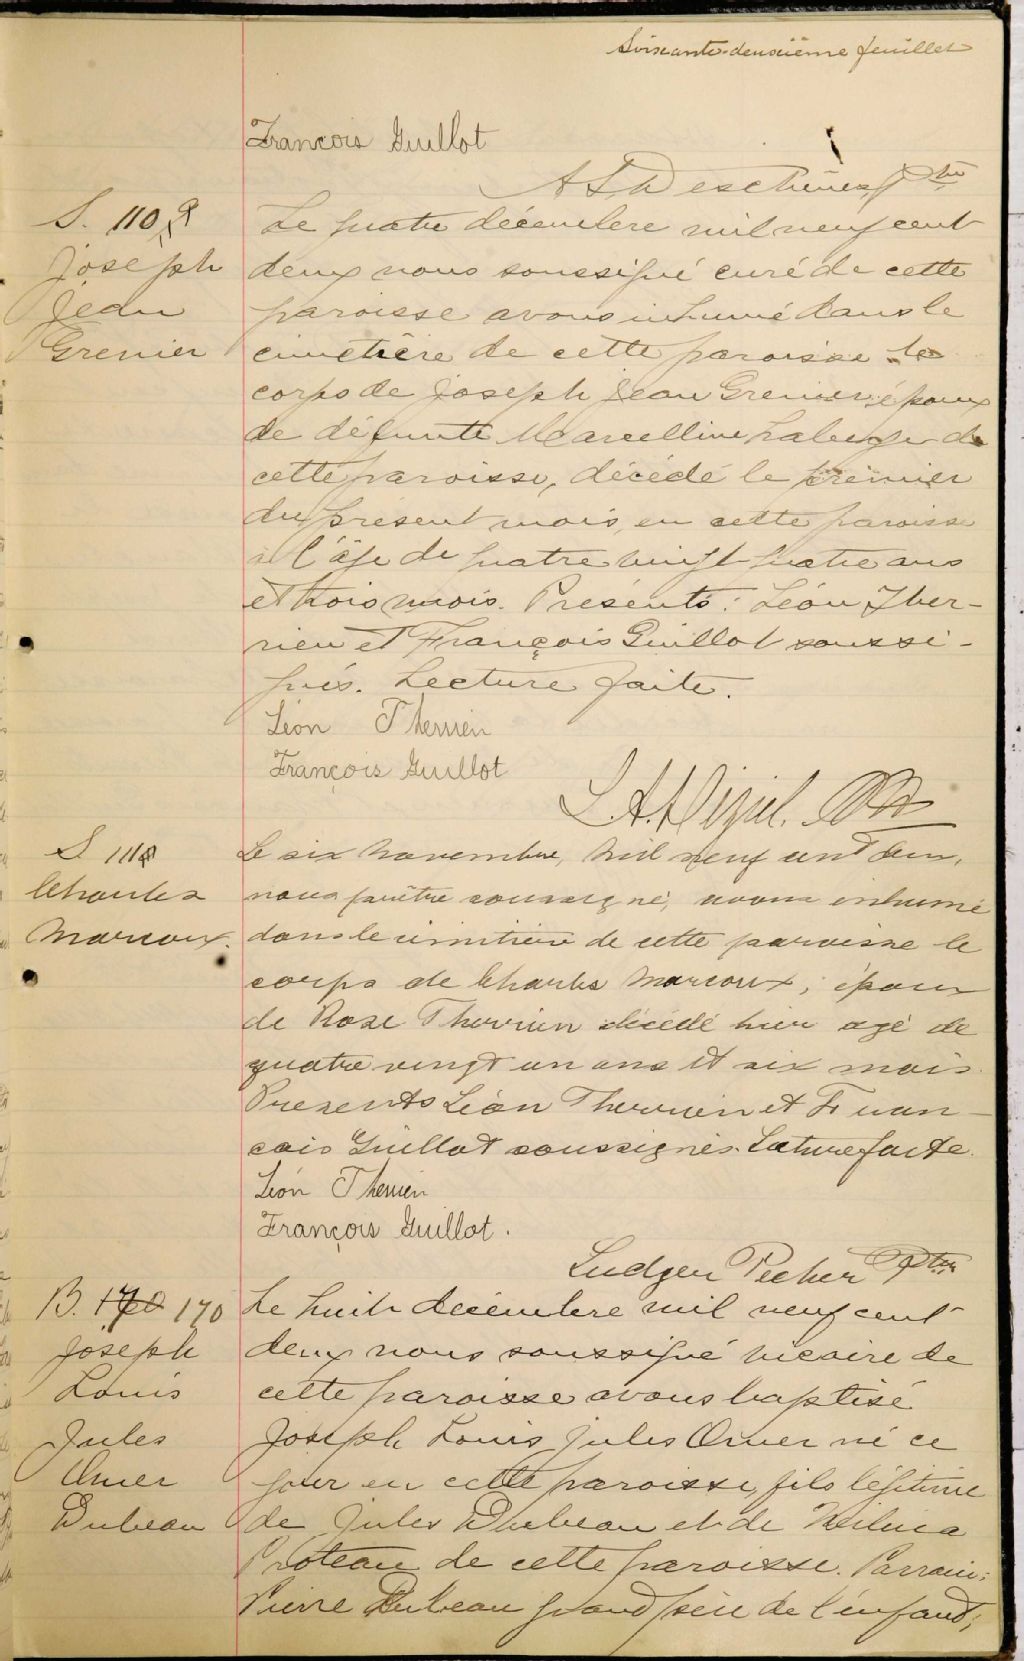 Soixante-deuxième feuillet
François Guillot
A S Deschênes Ptre
S. 110
Joseph
Jean
Grenier
Le quatre décembre mil neuf cent
deux nous soussigné curé de cette
paroisse avons inhumé dans le
cimetière de cette paroisse le
corps de Joseph Jean Grenier époux
de défunte Marcelline Laberge de
cette paroisse, décédé le premier
du présent mois, en cette paroisse
à l'âge de quatre vingt-quatre ans
et trois mois. Présents: Léon Ther-
rien et François Guillot soussi-
gnés. Lecture faite.
Léon Therrien
François Guillot
S. 111
Charles
Marcoux.
Le six novembre, mil neuf cent deux,
nous prêtre soussigné, avons inhumé
dans le cimitière de cette paroisse le
corps de Charles Marcoux, époux
de Rose Therrien décédé hier agé de
quatre vingt un ans et six mois.
Presents Léon Therrien et Fran-
cois Guillot soussignés. Lecture faite.
Léon Therrien
François Guillot.
Ludger Picher Ptre
B. 170
Joseph
Louis
Jules
Omer
Dubeau
Le huit décembre mil neuf cent
deux nous soussigné vicaire de
cette paroisse avons baptisé
Joseph Louis Jules Omer né ce
jour en cette paroisse, fils légitime
de Jules Dubeau et de
Proteau de cette paroisse. Parrain:
Pierre Dubeau grand père de l'enfant;